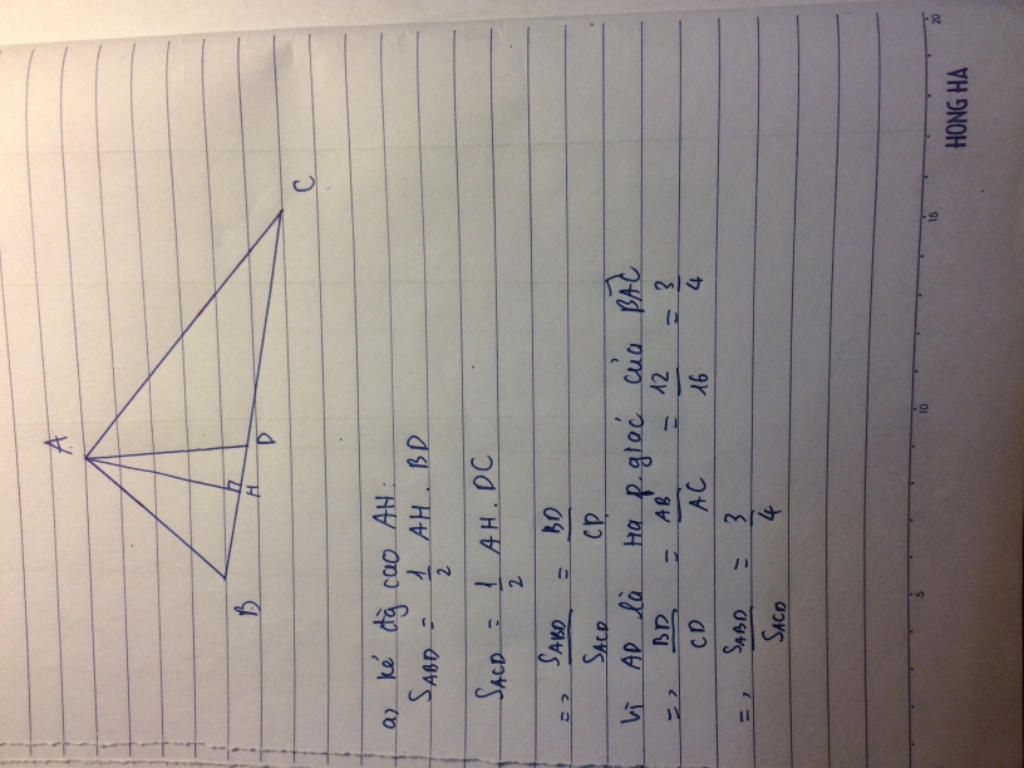 A
B
H
D
C
a) Kẻ đg cao AH:
S_ABD = 1/2 AH. BD
S_ACD = 1/2 AH. DC
=> S_ABD/S_ACD = BD/CD
Vì AD là tia p.giác của BAC
=> BD/CD = AB/AC = 12/16 = 3/4
=> S_ABD/S_ACD = 3/4
5 10 15 20
HONG HA